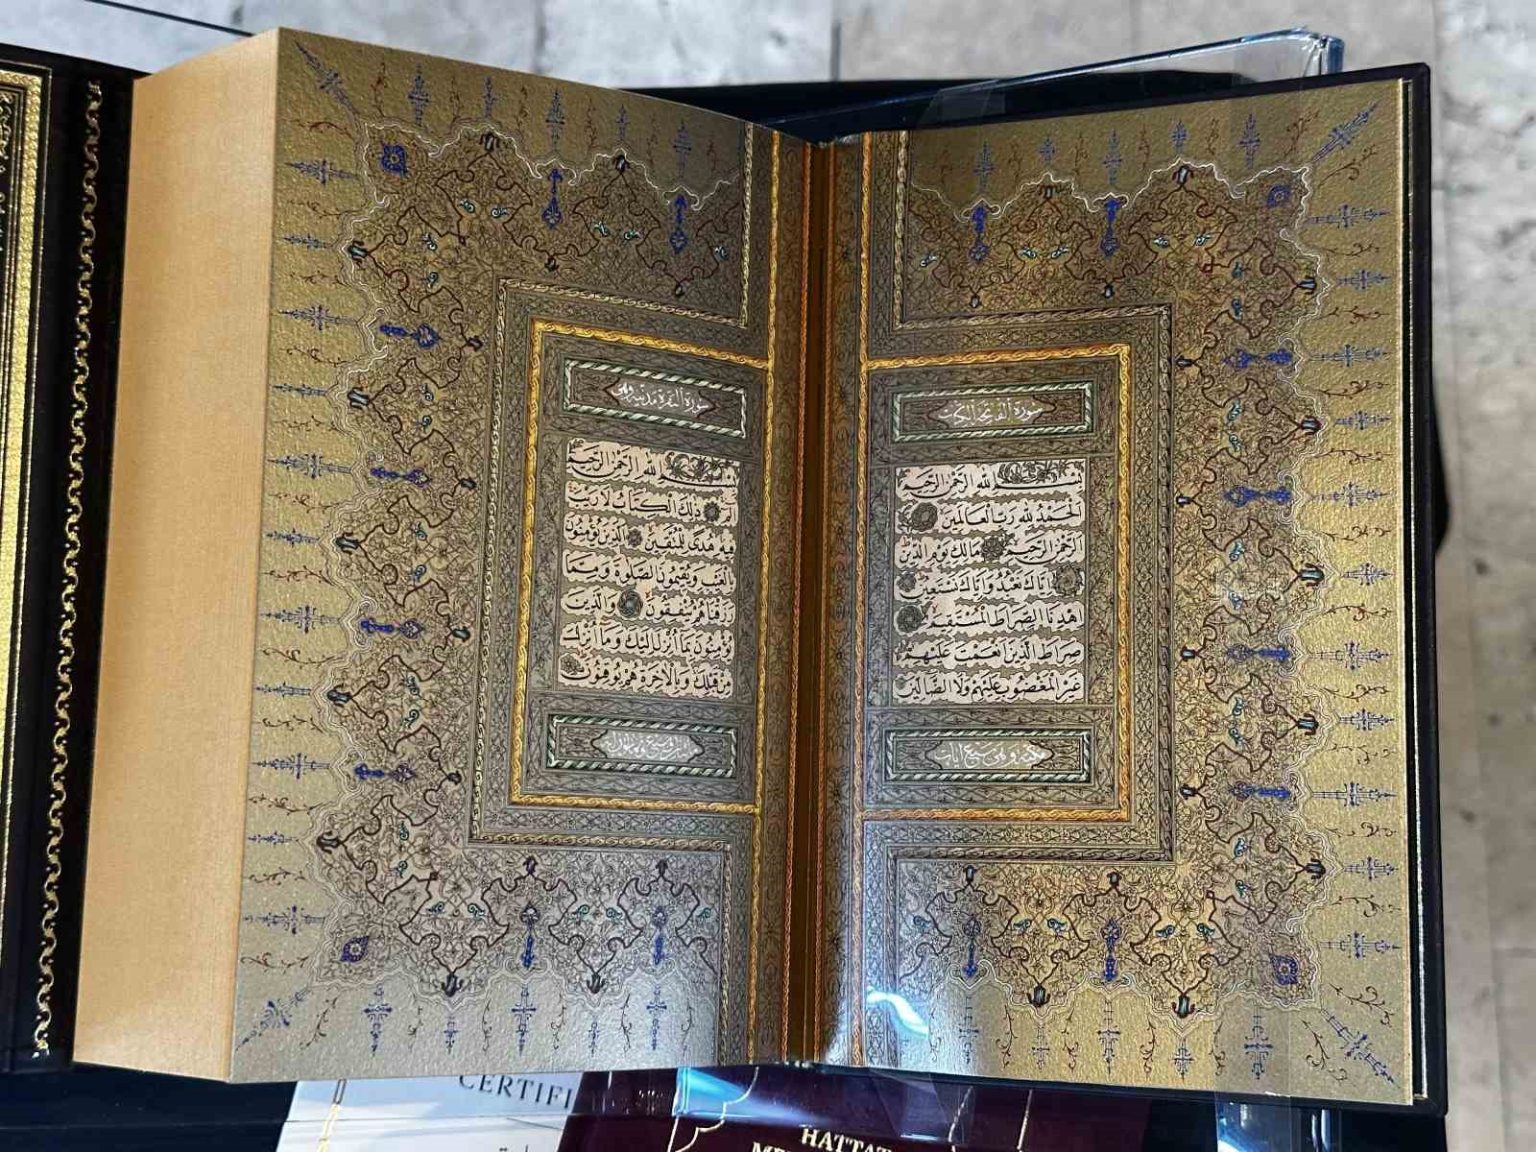 سورة الفاتحة الكتاب
بِسْمِ اللهِ الرَّحْمٰنِ الرَّحِيمِ
اَلْحَمْدُ لِلّٰهِ رَبِّ الْعَالَمِينَ
اَلرَّحْمٰنِ الرَّحِيمِ مَالِكِ يَوْمِ الدِّينِ
اِيَّاكَ نَعْبُدُ وَاِيَّاكَ نَسْتَعِينُ
اِهْدِنَا الصِّرَاطَ الْمُسْتَقِيمَ
صِرَاطَ الَّذِينَ اَنْعَمْتَ عَلَيْهِمْ
غَيْرِ الْمَغْضُوبِ عَلَيْهِمْ وَلَا الضَّالِّينَ
مكية وهى سبع ايات
سورة البقرة مدنية وهى
بِسْمِ اللهِ الرَّحْمٰنِ الرَّحِيمِ
الٓمٓ ذٰلِكَ الْكِتَابُ لَا رَيْبَ
فِيهِ هُدًى لِلْمُتَّقِينَ اَلَّذِينَ يُؤْمِنُونَ
بِالْغَيْبِ وَيُقِيمُونَ الصَّلٰوةَ وَمِمَّا
رَزَقْنَاهُمْ يُنْفِقُونَ وَالَّذِينَ
يُؤْمِنُونَ بِمَا اُنْزِلَ اِلَيْكَ وَمَا اُنْزِلَ
مِنْ قَبْلِكَ وَبِالْاٰخِرَةِ هُمْ يُوقِنُونَ
CERTIFI
HATTAT